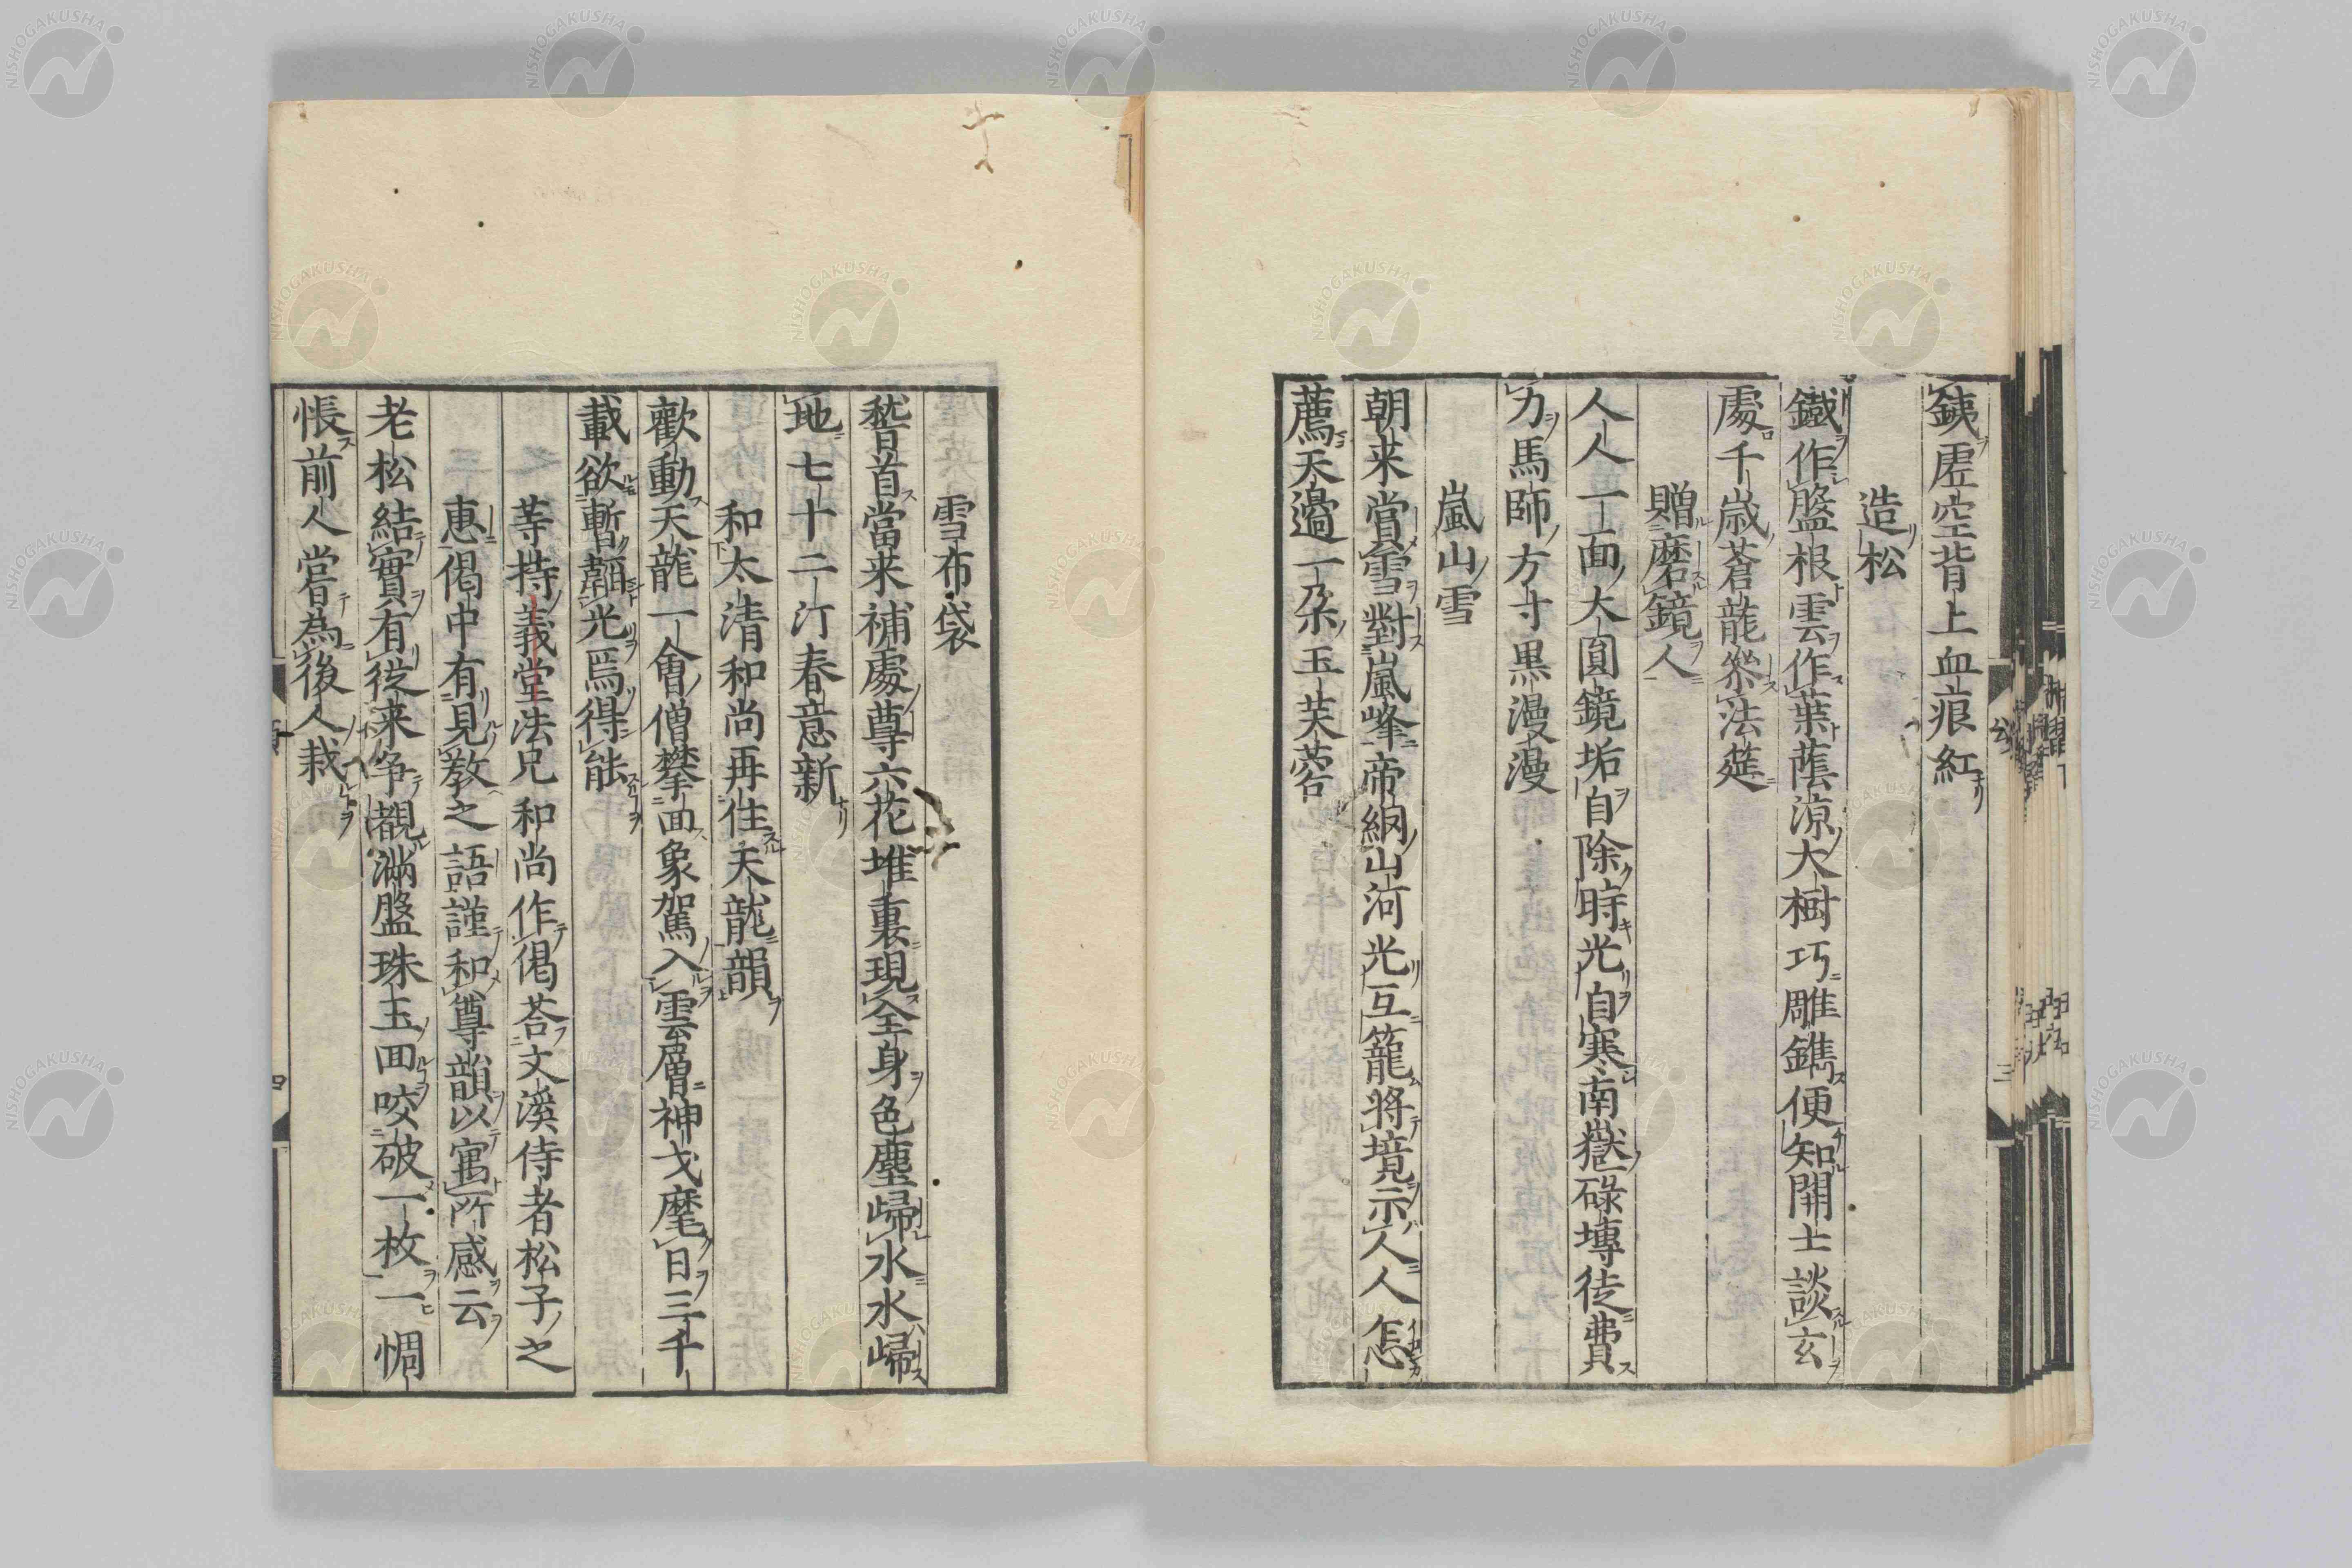 銕虚空背上血痕紅
造松
鐵作盤根雲作葉蔭涼大樹巧雕鐫便知開士談玄
處千歳蒼龍參法莚
贈磨鏡人
人人一面大圓鏡垢自除時光自寒南嶽碌塼徒費
力馬師方寸黒漫漫
嵐山雪
朝来賞雪對嵐峰帝網山河光互籠將境示人人怎
薦天邊一朶玉芙蓉
雪布袋
稽首當来補處尊六花堆裏現全身色塵歸水水歸
地七十二汀春意新
和太清和尚再住天龍韻
歡動天龍一會僧攀回象駕入雲層神戈麾日三千
載欲暫韜光焉得能
等持義堂法兄和尚作偈荅文溪侍者松子之
惠偈中有見教之語謹和尊韻以寓所感云
老松結實有従来争覩滿盤珠玉回咬破一枚一惆
悵前人甞為後人栽
NISHOGAKUSHA